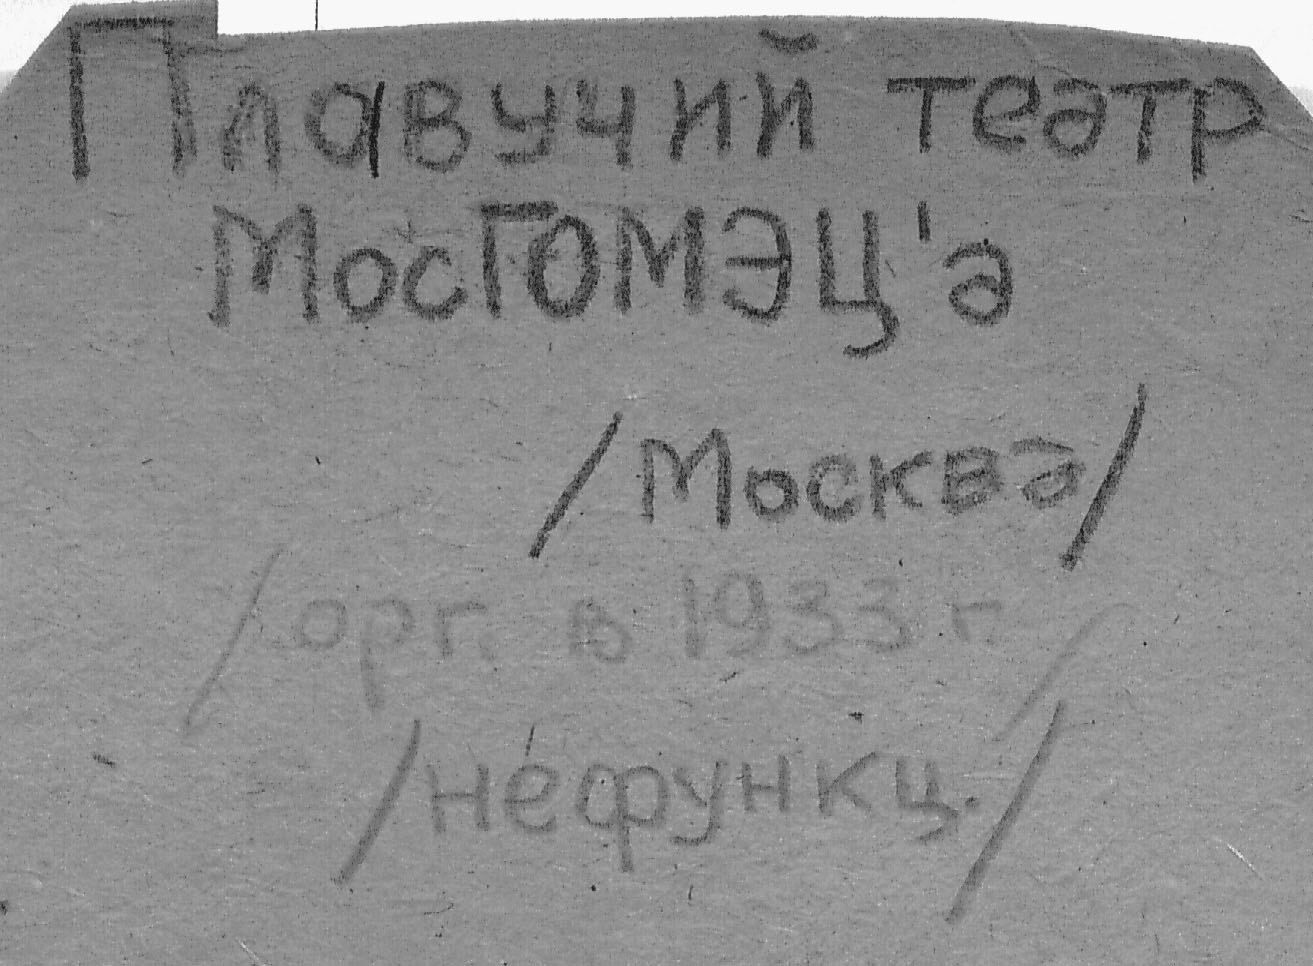 Плавучий театр
МосГОМЭЦ'а
/Москва/
/орг. в 1933 г./
/нефункц./